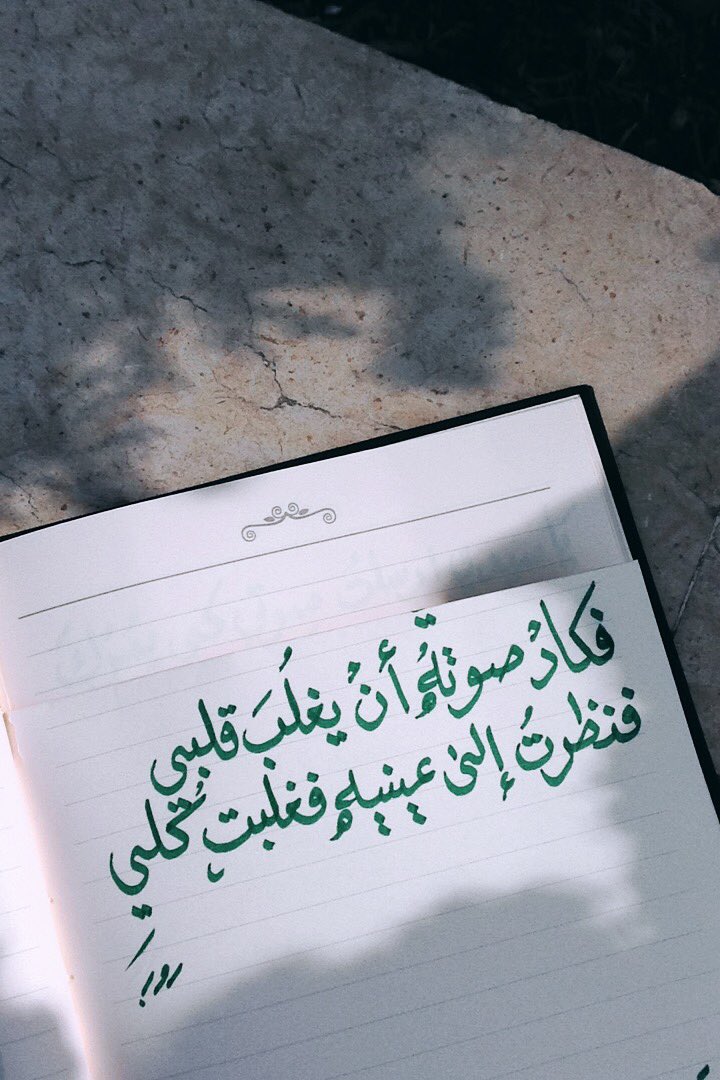 فكادْ صوتهُ أنْ يغلُبَ قلبي
فنظرتُ إلىٰ عينيهِ فغلبتِ كُلي